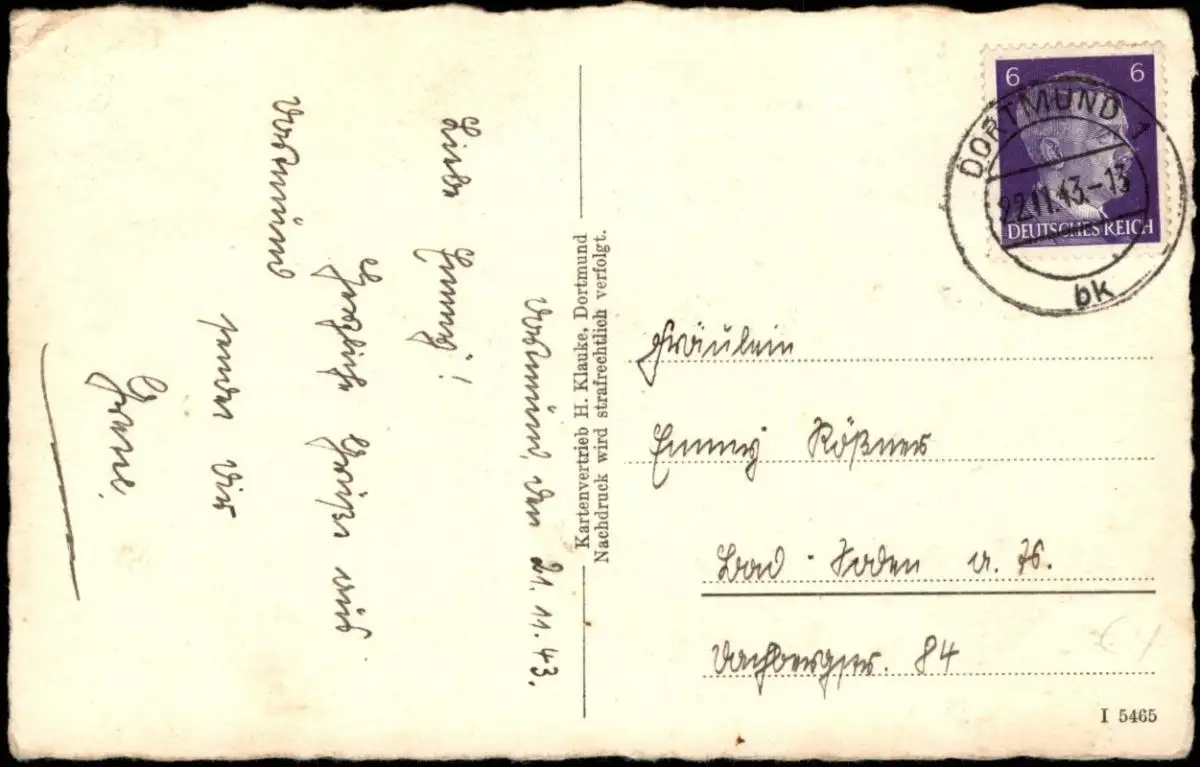 Dortmund, den 21.11.43.
Liebe Emmy!
Herzliche Grüße aus
Dortmund
sendet Dir
Kartenvertrieb H. Klauke, Dortmund
Nachdruck wird strafrechtlich verfolgt.
6 6
DEUTSCHES REICH
DORTMUND 1
22.11.43.-13
bk
Fräulein
Emmy Rößner
Bad - Soden a. Ts.
Dachbergstr. 84
I 5465